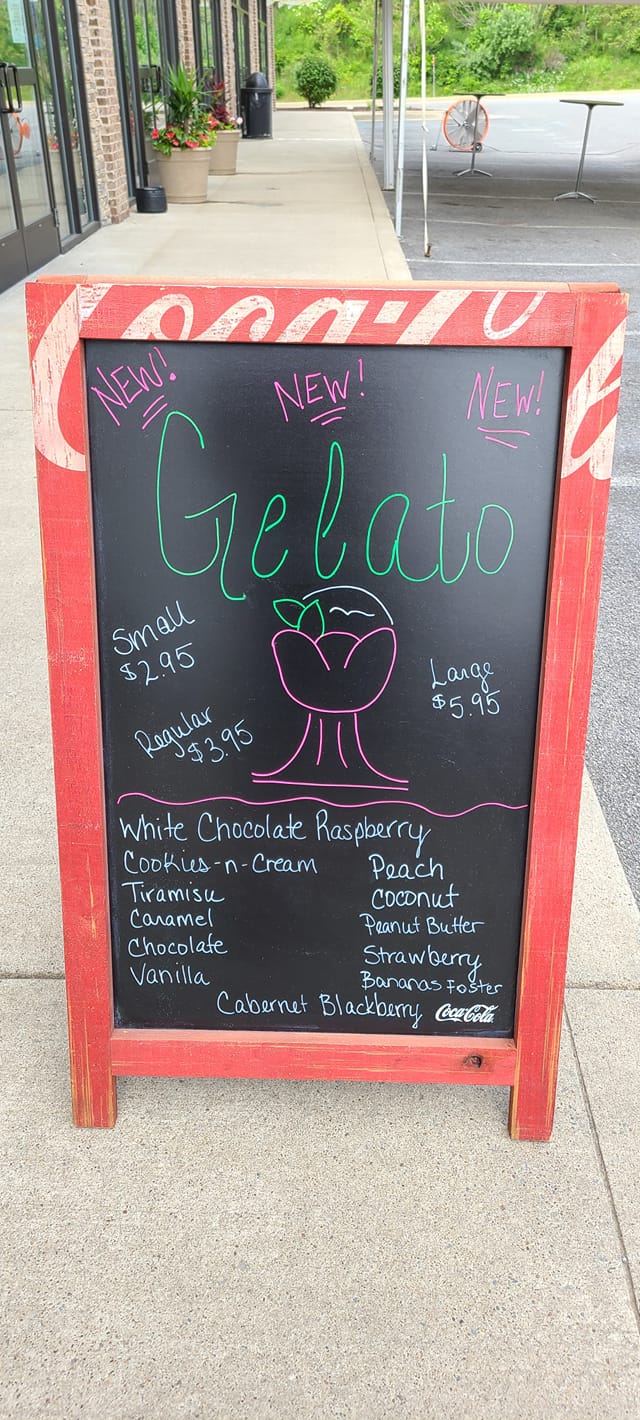 Coca-Cola
NEW! NEW! NEW!
Gelato
Small
$2.95
Large
$5.95
Regular
$3.95
White Chocolate Raspberry
Cookies-n-Cream
Tiramisu
Caramel
Chocolate
Vanilla
Peach
Coconut
Peanut Butter
Strawberry
Bananas Foster
Cabernet Blackberry
Coca-Cola